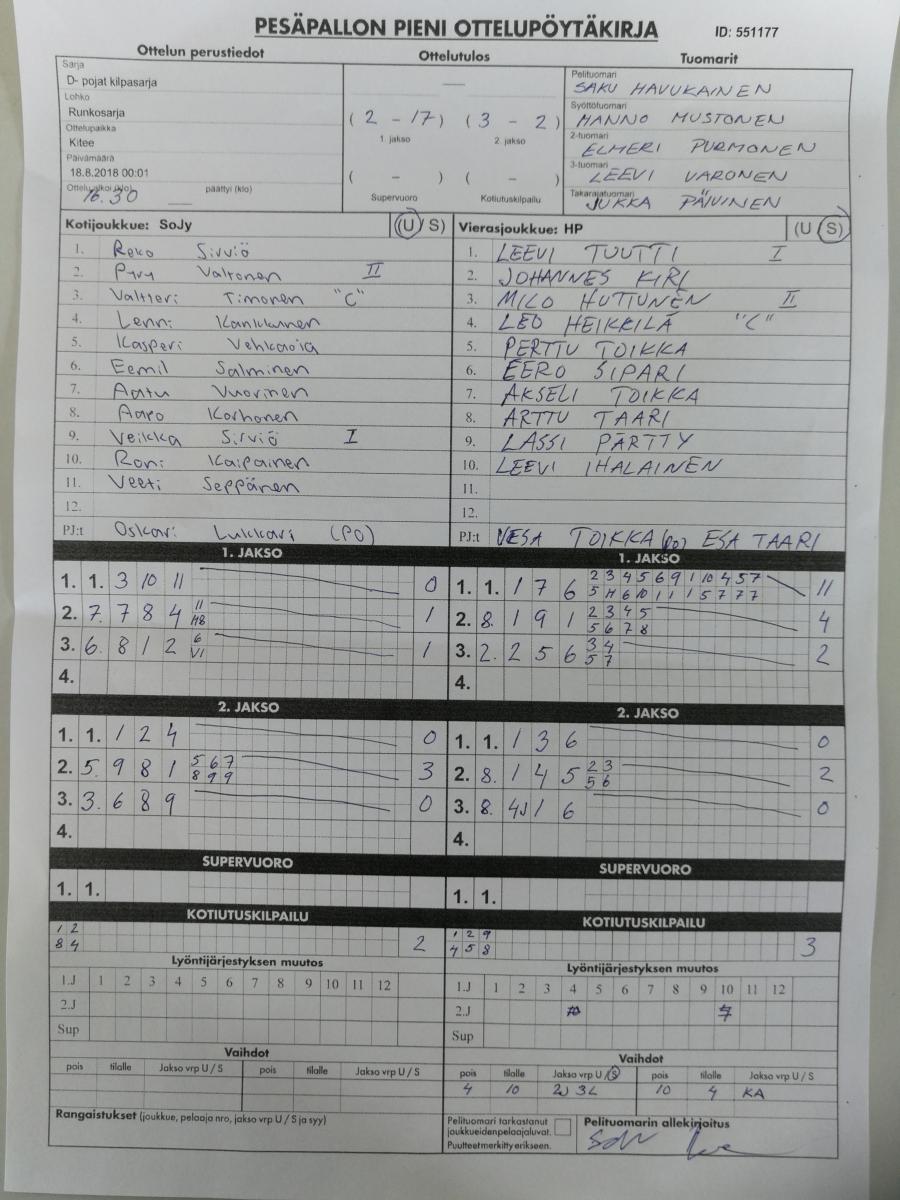 PESÄPALLON PIENI OTTELUPÖYTÄKIRJA ID: 551177
Ottelun perustiedot Ottelutulos Tuomarit
Sarja
D- pojat kilpasarja
Lohko
Runkosarja
Ottelupaikka
Kitee
Päivämäärä
18.8.2018 00:01
Ottelu alkoi (klo) päättyi (klo)
16.30
—
( 2 - 17 ) ( 3 - 2 )
1. jakso 2. jakso
( - ) ( - )
Supervuoro Kotiutuskilpailu
Pelituomari
SAKU HAVUKAINEN
Syöttötuomari
HANNO MUSTONEN
2-tuomari
ELMERI PURMONEN
3-tuomari
LEEVI VARONEN
Takarajatuomari
JUKKA PÄIVINEN
Kotijoukkue: SoJy (U / S)
1. Reko Sirviö
2. Pyry Valtonen II
3. Valtteri Timonen "C"
4. Lenni Kankkunen
5. Kasperi Vehkaoja
6. Eemil Salminen
7. Aatu Vuorinen
8. Aaro Korhonen
9. Veikka Sirviö I
10. Roni Kaipainen
11. Veeti Seppänen
12.
PJ:t Oskari Lukkari (PO)
Vierasjoukkue: HP (U / S)
1. LEEVI TUUTTI I
2. JOHANNES KIRI
3. MILO HUTTUNEN II
4. LEO HEIKKILÄ "C"
5. PERTTU TOIKKA
6. EERO SIPARI
7. AKSELI TOIKKA
8. ARTTU TAARI
9. LASSI PÄRTTY
10. LEEVI IHALAINEN
11.
12.
PJ:t VESA TOIKKA (PO) ESA TAARI
1. JAKSO
1. 1. 3 10 11 0
2. 7. 7 8 4 11 1
H8
3. 6. 8 1 2 6 1
VI
4.
1. JAKSO
1. 1. 1 7 6 2 3 4 5 6 9 1 10 4 5 7 11
5 H 6 10 1 1 1 5 7 7 7
2. 8. 1 9 1 2 3 4 5 4
5 6 7 8
3. 2. 2 5 6 3 4 2
5 7
4.
2. JAKSO
1. 1. 1 2 4 0
2. 5. 9 8 1 5 6 7 3
8 9 9
3. 3. 6 8 9 0
4.
2. JAKSO
1. 1. 1 3 6 0
2. 8. 1 4 5 2 3 2
5 6
3. 8. 4J1 6 0
4.
SUPERVUORO
1. 1.
SUPERVUORO
1. 1.
KOTIUTUSKILPAILU
1 2
8 4 2
KOTIUTUSKILPAILU
1 2 9
4 5 8 3
Lyöntijärjestyksen muutos
1.J 1 2 3 4 5 6 7 8 9 10 11 12
2.J
Sup
Lyöntijärjestyksen muutos
1.J 1 2 3 4 5 6 7 8 9 10 11 12
2.J
Sup
Vaihdot
pois tilalle Jakso vrp U / S pois tilalle Jakso vrp U / S
Vaihdot
pois tilalle Jakso vrp U / S pois tilalle Jakso vrp U / S
4 10 2J 3L 10 4 KA
Rangaistukset (joukkue, pelaaja nro, jakso vrp U / S ja syy)
Pelituomari tarkastanut
joukkueidenpelaajaluvat.
Puutteetmerkitty erikseen.
Pelituomarin allekirjoitus